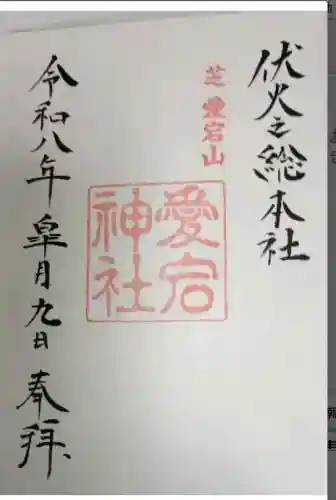 伏火之總本社
芝 愛宕山
愛宕
神社
令和八年皐月九日 奉拝